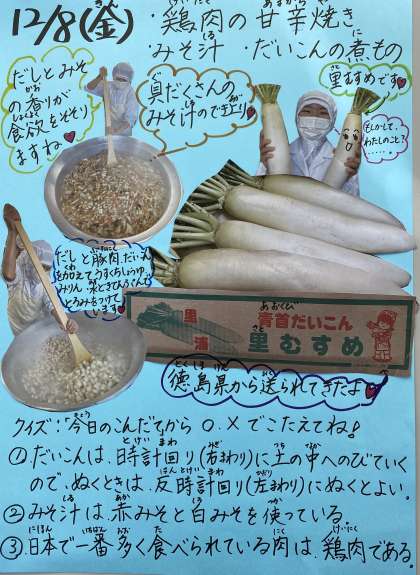 12/8(金)
・鶏肉の甘辛焼き
・みそ汁 ・だいこんの煮もの
だしとみそ
の香りが
食欲をそそり
ますね
具だくさんの
みそ汁のでき上り
里むすめです
もしかして、
わたしのこと?
......。
だしと豚肉、だいこん
加えてうすくちしょうゆ
みりん、水ときでんぷんで
とろみをつけて
います
里浦
あおくび
青首だいこん
里むすめ
徳島県から送られてきたよ
クイズ:「今日のこんだて」から ○、×でこたえてね!
①だいこんは、時計回り(右まわり)に土の中へのびていく
ので、ぬくときは、反時計回り(左まわり)にぬくとよい。
②みそ汁は、赤みそと白みそを使っている。
③日本で一番多く食べられている肉は、鶏肉である。